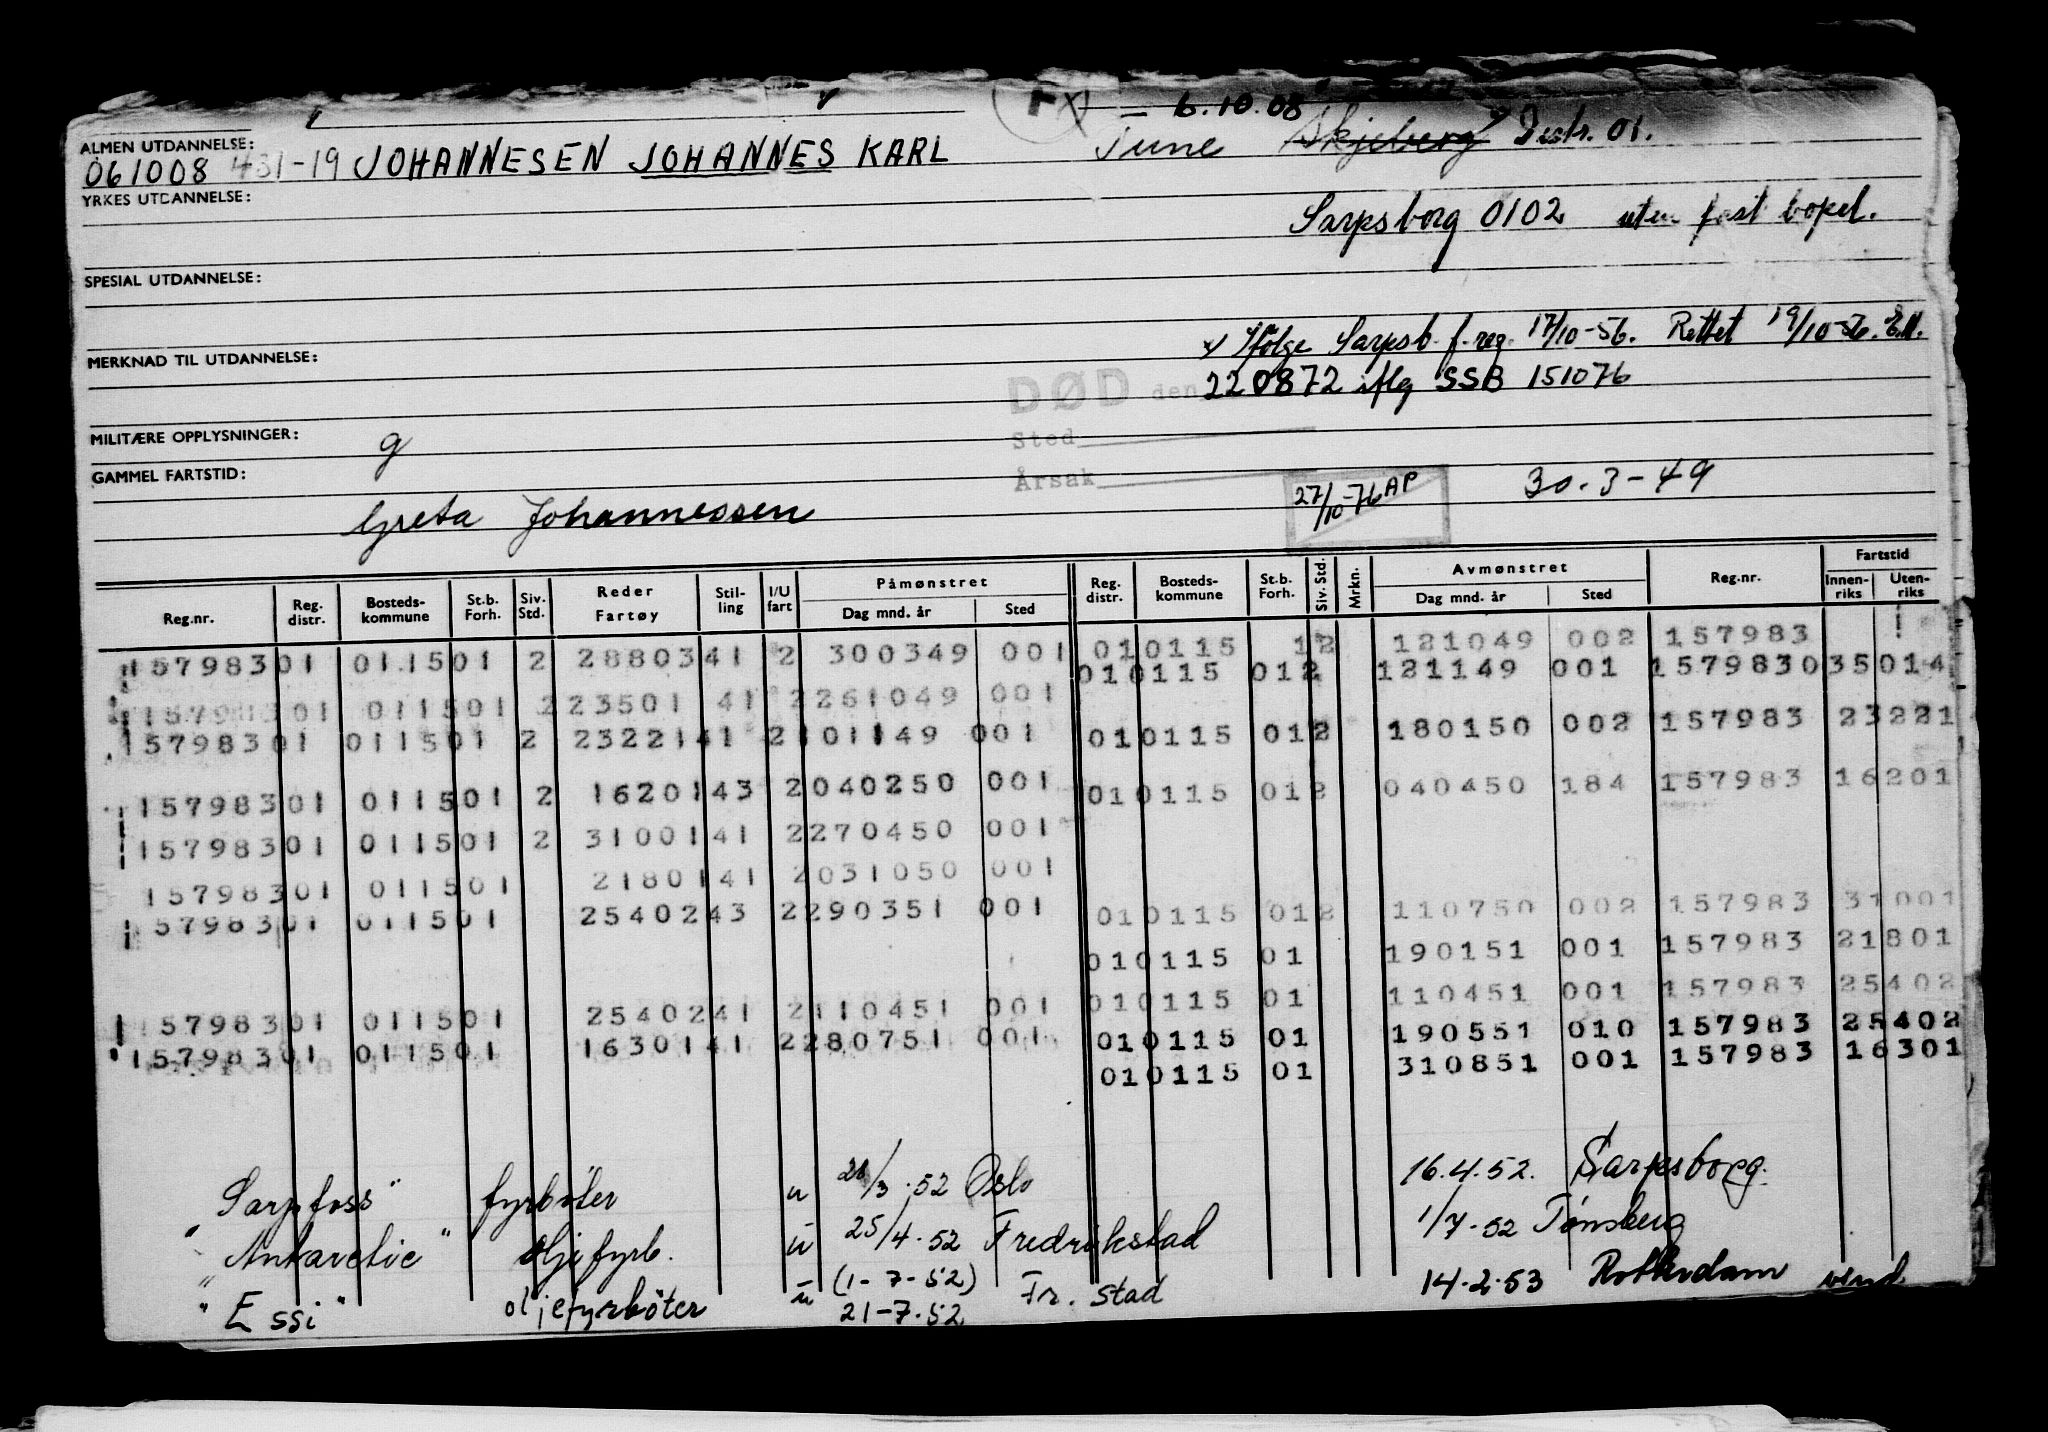 6.10.08
ALMEN UTDANNELSE:
061008 431-19 JOHANNESEN JOHANNES KARL Tune Skjeberg Distr. 01.
YRKES UTDANNELSE:
Sarpsborg 0102 uten fast bopel.
SPESIAL UTDANNELSE:
Ifølge Sarpsb. f.reg. 17/10-56. Rettet 19/10-56.
MERKNAD TIL UTDANNELSE:
DØD den 220872 iflg SSB 151076
MILITÆRE OPPLYSNINGER: g
Sted
GAMMEL FARTSTID:
Årsak
27/10-76 AP 30.3-49
Greta Johannessen
Reg.nr. Reg. distr. Bosteds- kommune St.b. Forh. Siv. Std. Reder Fartøy Stil- ling I/U fart Påmønstret Dag mnd. år Sted Reg. distr. Bosteds- kommune St.b. Forh. Siv. Std. Mrkn. Avmønstret Dag mnd. år Sted Reg.nr. Fartstid Innen- riks Uten- riks
157983 01 0115 01 2 28803 41 2 300349 001 01 0115 1 2 121049 002 157983
01 0115 01 2 121149 001 157983 0 35014
157983 01 0115 01 2 23501 41 2 261049 001
157983 01 0115 01 2 23221 41 2 101149 001 01 0115 01 2 180150 002 157983 23221
157983 01 0115 01 2 16201 43 2 040250 001 01 0115 01 2 040450 184 157983 16201
157983 01 0115 01 2 31001 41 2 270450 001
157983 01 0115 01 21801 41 2 031050 001
157983 01 0115 01 25402 43 2 290351 001 01 0115 01 2 110750 002 157983 31001
01 0115 01 190151 001 157983 21801
01 0115 01 110451 001 157983 25402
157983 01 0115 01 25402 41 2 110451 001 01 0115 01 190551 010 157983 25402
157983 01 0115 01 16301 41 2 280751 001 01 0115 01 310851 001 157983 16301
"Sarpfoss" fyrbøter u /3.52 Oslo 16.4.52. Sarpsborg.
"Antarctic" oljefyrb. u 25/4.52 Fredrikstad 1/7-52 Tønsberg
"Essi" oljefyrbøter u (1-7-52) Fr. stad 14-2-53 Rotterdam vend
21-7.52